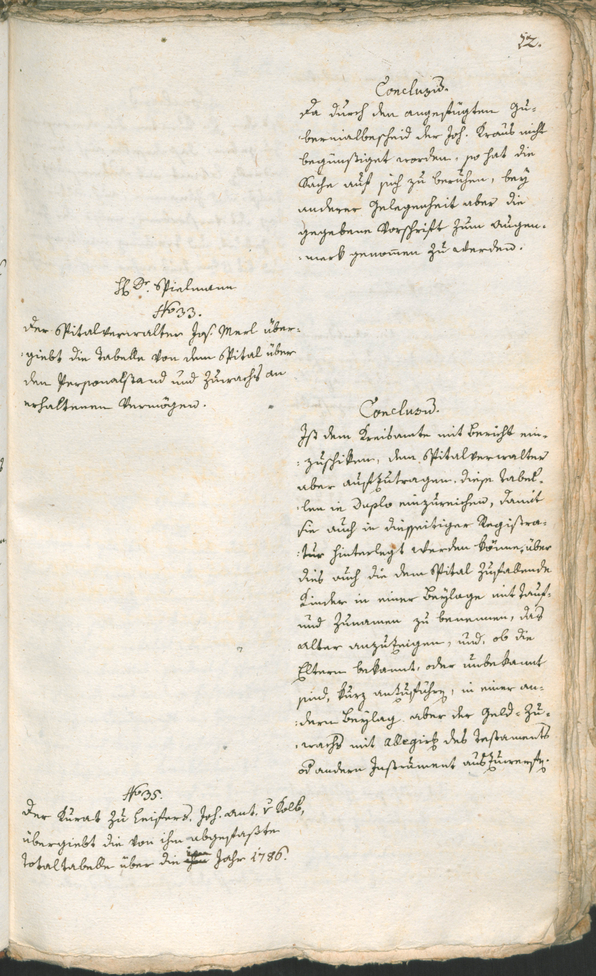 52.
Conclusum.
Da durch den angefügten Gu-
bernialbescheid der Joh. Kraus nicht
begünstiget worden, so hat die
Sache auf sich zu beruhen, bey
anderer Gelegenheit aber die
gegebene Vorschrift zum Augen-
merk genommen zu werden.
H. Dr. Spielmann
No 33.
Der Spitalverwalter Jos. Merl über-
giebt die Tabelle von dem Spital über
den Personalstand und Zuwachs an
erhaltenem Vermögen.
Conclusum.
Ist dem Kreisamte mit Bericht ein-
zuschiken, dem Spitalverwalter
aber aufzutragen, diese Tabel-
len in Duplo einzureichen, damit
sie auch in diesseitiger Registra-
tur hinterlegt werden könne, über
dies auch die dem Spital zufallende
Kinder in einer Beylage mit Tauf-
und Zunamen zu benennen, das
Alter anzuzeigen, und, ob die
Eltern bekannt, oder unbekannt
sind, kurz anzuführen, in einer an-
dern Beylag aber der Geld-Zu-
wachs mit des Testaments
od andern Instrument auszuwersen.
No 35.
Der Kurat zu Leifers, Joh. Ant. v Kolb,
übergiebt die von ihm abgefaßte
Totaltabelle über die Jahr 1786.